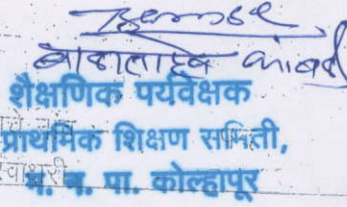 बाळासाहेब कांबळे
शैक्षणिक पर्यवेक्षक
प्राथमिक शिक्षण समिती,
म. न. पा. कोल्हापूर